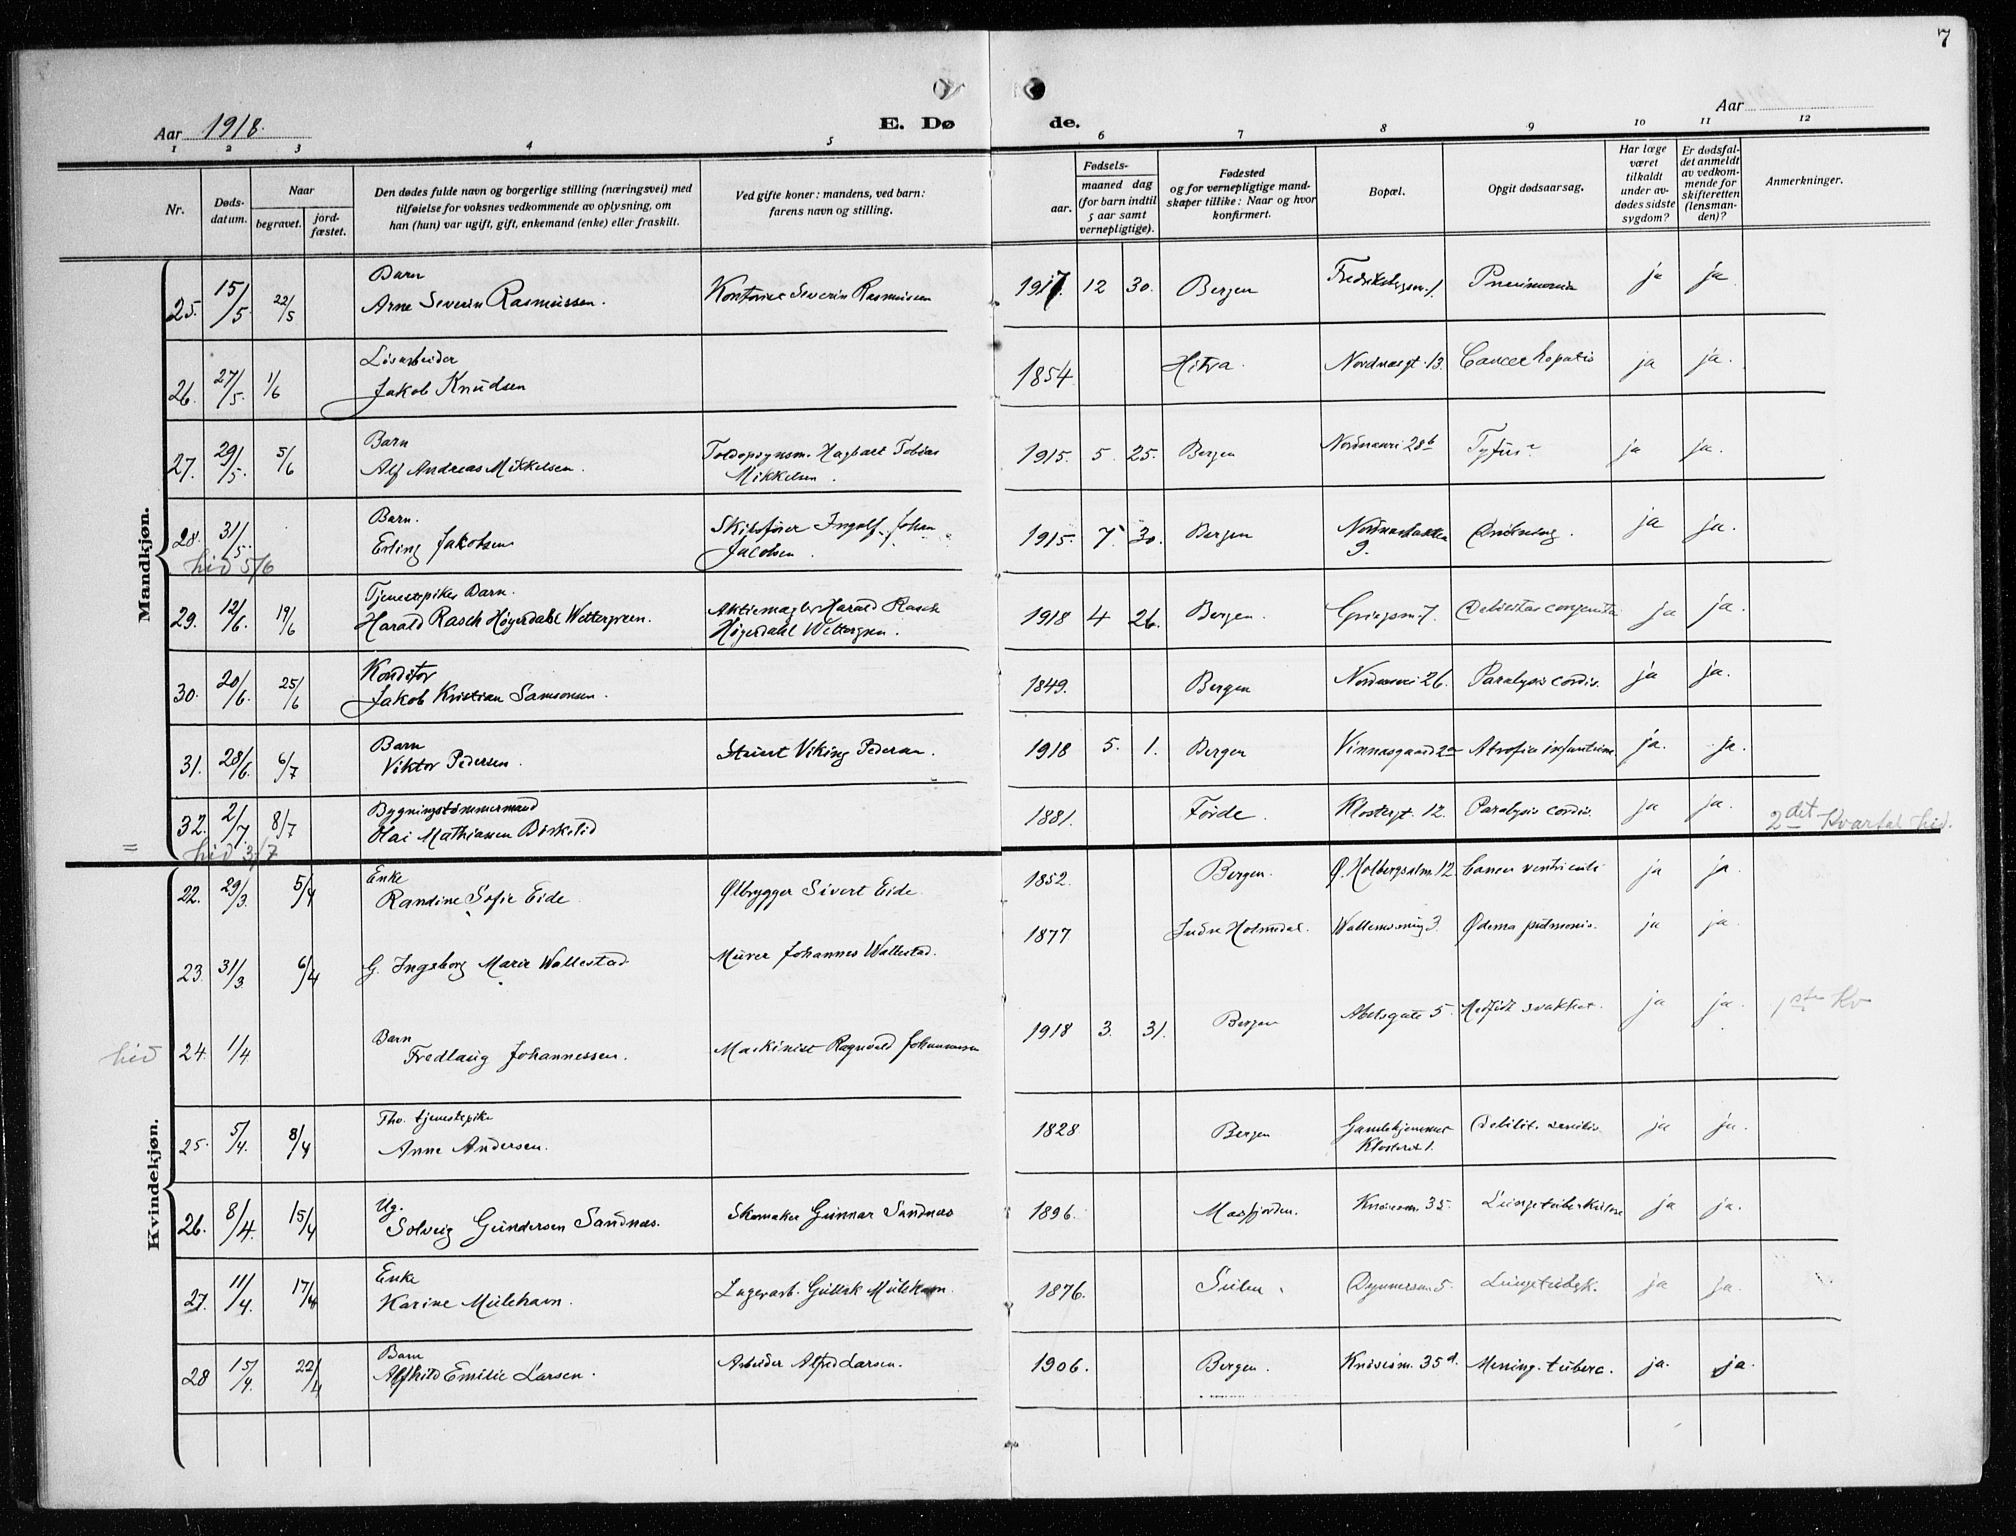 7
Aar 1918.
E. Dø
de.
Aar
1 2 3 4 5 6 7 8 9 10 11 12
Nr.
Døds-
datum.
Naar
begravet.
jord-
fæstet.
Den dødes fulde navn og borgerlige stilling (næringsvei) med
tilføielse for voksnes vedkommende av oplysning, om
han (hun) var ugift, gift, enkemand (enke) eller fraskilt.
Ved gifte koner: mandens, ved barn:
farens navn og stilling.
Fødsels-
aar.
maaned dag
(for barn indtil
5 aar samt
vernepligtige).
Fødested
og for vernepligtige mand-
skaper tillike: Naar og hvor
konfirmert.
Bopæl.
Opgit dødsaarsag.
Har læge
været
tilkaldt
under av-
dødes sidste
sygdom?
Er dødsfal-
det anmeldt
av vedkom-
mende for
skifteretten
(lensman-
den)?
Anmerkninger.
Mandkjøn.
Barn
25. 15/5 22/5 Arne Severin Rasmussen. Kontorist Severin Rasmussen 1917. 12 30. Bergen 1. Pneumonia ja ja
Løsarbeider
26. 27/5. 1/6 Jakob Knudsen 1854. Hitra. Nordnæsgt. 13. Cancer hepatis ja ja.
Barn
27. 29/5. 5/6 Alf Andreas Mikkelsen. Toldopsynsm. Hagbart Tobias
Mikkelsen. 1915. 5. 25. Bergen Nordnesvei 28b Tyfus ja ja.
Barn.
28. 31/5. Erling Jakobsen Skibsfører Ingolf Johan
Jacobsen. 1915. 7. 30. Bergen Nordnæsbakken
9. ja ja.
hid 5/6
Tjenestepikes Barn.
29. 12/6. 19/6 Harald Rasch Høyerdahl Wettergreen. Aktiemægler Harald Rasch
Høyerdahl Wettergreen. 1918 4 26. Bergen. 7. Debilitas congenita ja ja.
Konditor
30. 20/6. 25/6 Jakob Kristian Samsonsen. 1849. Bergen Nordnesvei 26. Paralysis cordis. ja ja.
Barn
31. 28/6. 6/7 Viktor Pedersen. Stuert Viking Pedersen. 1918 5. 1. Bergen Vinnesgaard 2a Atrofia infantum ja. ja.
Bygningstømmermand
32. 2/7. 8/7 Mathiassen Birkelid 1881. Førde. Klostergt. 12. Paralysis cordis ja ja. 2det Kvartal hid.
= hid 3/7
Kvindekjøn.
Enke
22. 29/3. 5/4 Randine Sofie Eide. Ølbrygger Sivert Eide. 1852. Bergen. Ø. Holbergsalm. 12 Cancer ventriculi ja ja.
23. 31/3. 6/4 G. Ingeborg Marie Wallestad Murer Johannes Wallestad. 1877. Indre Holmedal. 3. Ødema pulmonis. ja ja.
Barn
hid 24. 1/4 Fredlaug Johannessen. Maskinist Ragnvald Johannessen 1918 3. 31. Bergen Abelsgate 5. Medfødt svakhet. ja ja. 1ste Kv
Fhv. tjenestepike
25. 5/4. 8/4 Anne Andersen. 1828. Bergen Gamlehjemmet
Klosteret 1. Debilit. senilis ja ja.
Ug.
26. 8/4. 15/4 Solveig Gundersen Sandnæs. Skomaker Gunnar Sandnæs 1896. Masfjorden. 35. Lungetuberkulose ja ja.
Enke
27. 11/4. 17/4 Karine Mulehavn. Lagerarb. Mulehavn. 1876. Sulen. 5. Lungetuberk. ja ja.
Barn
28 15/4. 22/4 Alfhild Emilie Larsen. Arbeider Alfred Larsen. 1906. Bergen. 35d. Mening. tuberc. ja. ja.